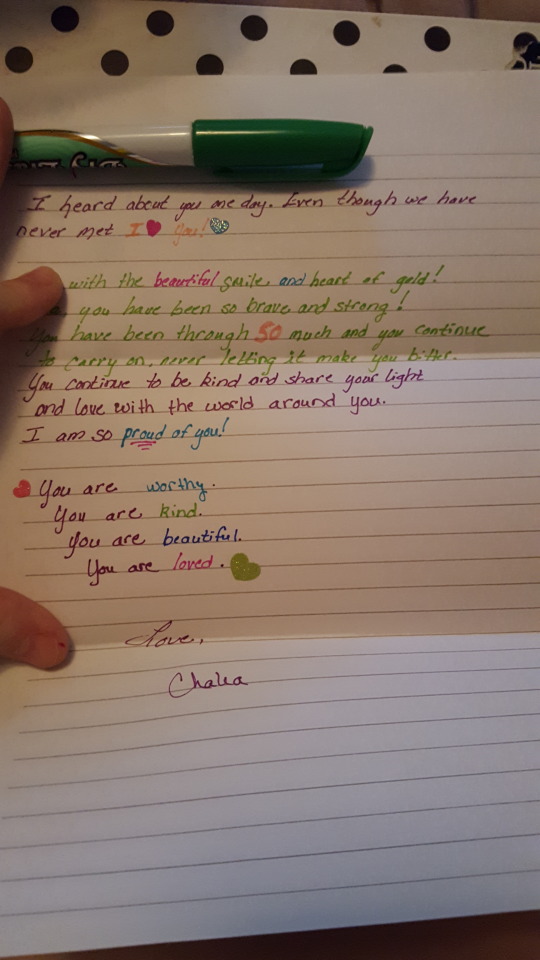 I heard about you one day. Even though we have
never met I ❤ you!
with the beautiful smile, and heart of gold!
you have been so brave and strong!
You have been through SO much and you continue
to carry on, never letting it make you bitter.
You continue to be kind and share your light
and love with the world around you.
I am so proud of you!
You are worthy.
You are kind.
You are beautiful.
You are loved.
Love,